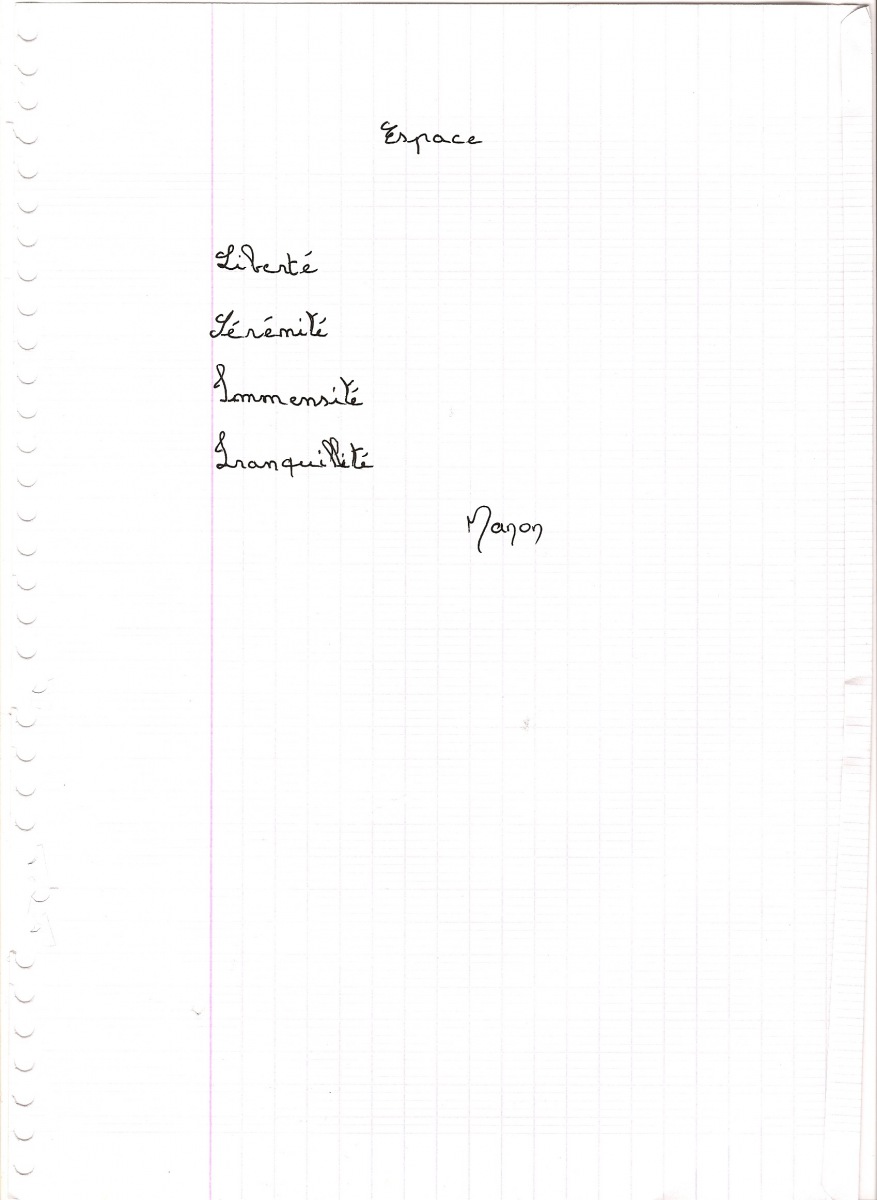 Espace
Liberté
Sérénité
Immensité
Tranquillité
Manon